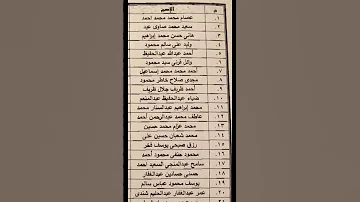 م الإسم
١. عصام محمد محمد احمد
٢. سعيد محمد صاوى عيد
٣. هاني حسن محمد إبراهيم
٤. وليد علي سالم محمود
٥. أحمد عبدالله عبدالحفيظ
٦. وائل قرني سيد محمود
٧. أحمد محمد محمد إسماعيل
٨. مجدى صلاح خاطر محمود
٩. أحمد ظريف جلال ظريف
١٠. ضياء عبدالحفيظ عبدالمنعم
١١. محمد إبراهيم عبدالستار محمد
١٢. عاطف محمد عبدالرحمن أحمد
١٣. محمد عزام محمد حسين
١٤. محمد شعبان حسين علي
١٥. رزق صبحى يوسف
١٦. محمود حنفى محمود أحمد
١٧. سامح عبدالمنجي السعيد أحمد
١٨. حسنى حسانين عبدالغفار
١٩. يوسف محمود عباس سالم
٢٠. عمر عبدالغفار عبدالحليم
٢١.